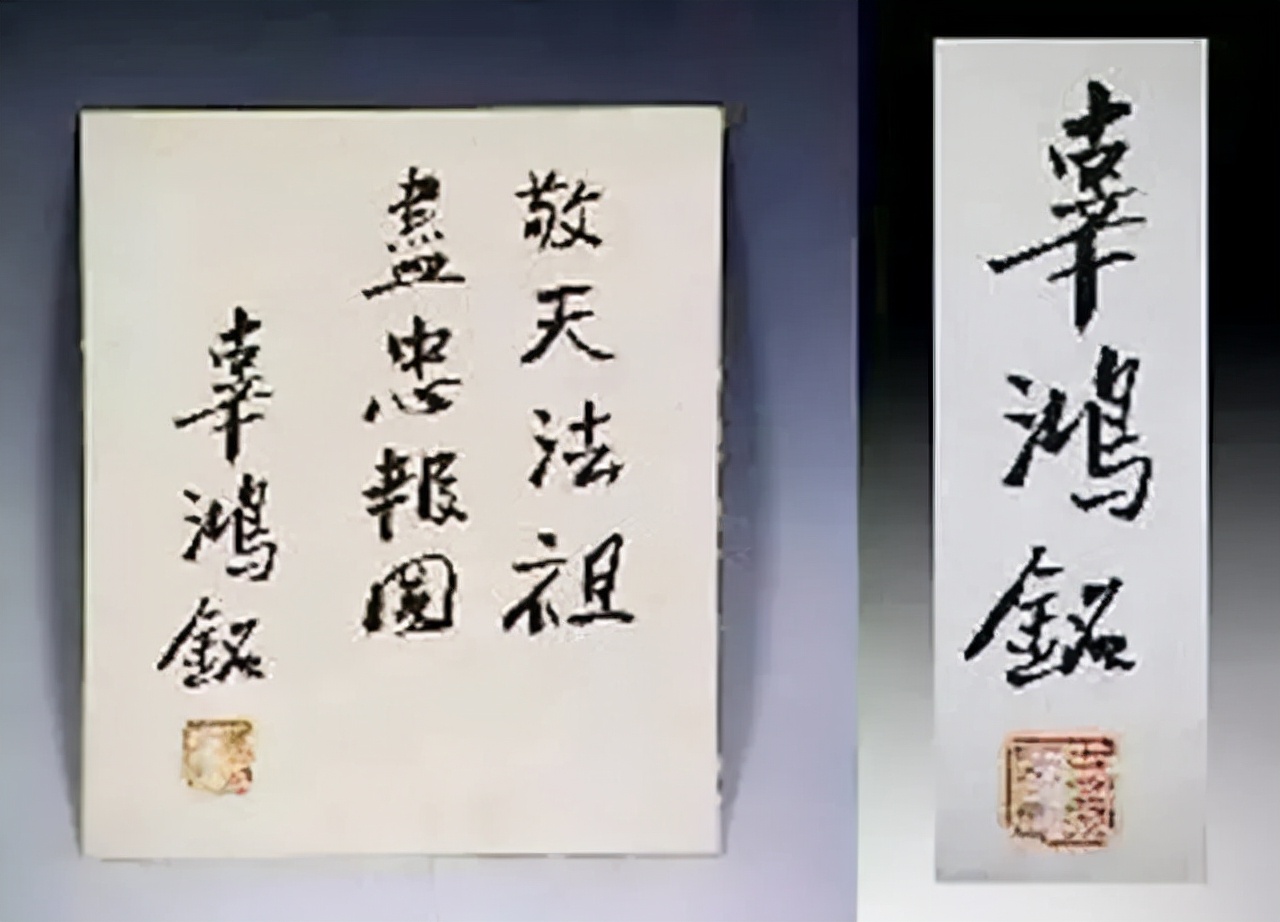 敬天法祖
盡忠報國
辜鴻銘
辜鴻銘